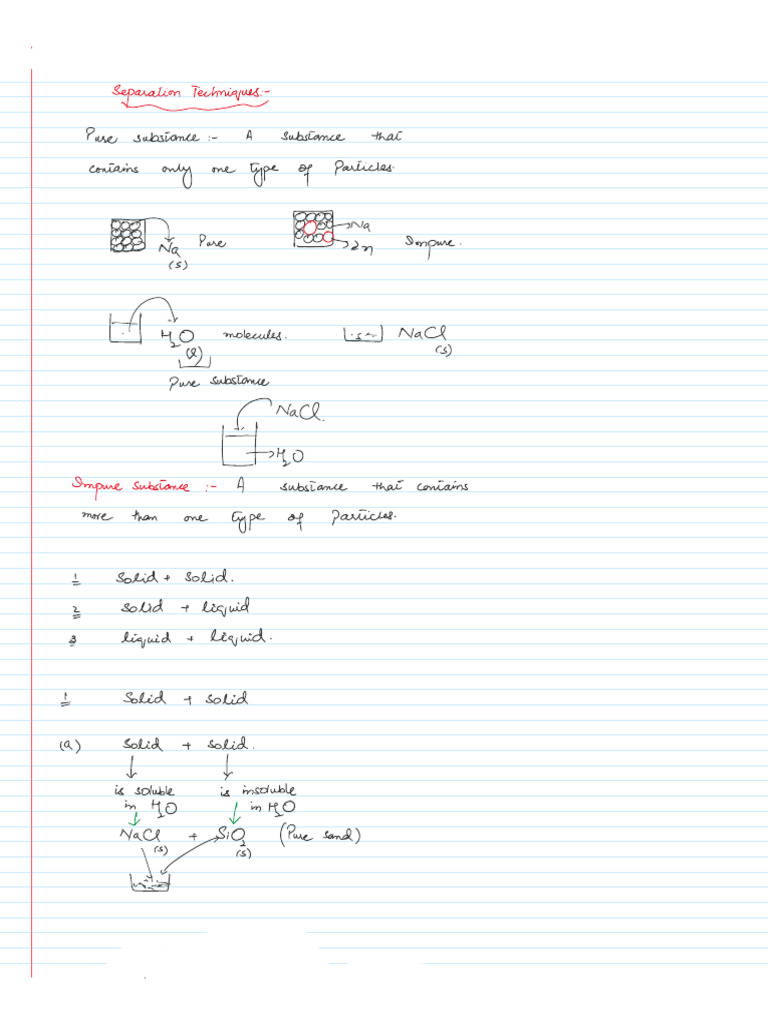 Separation Techniques:-
Pure substance :- A substance that
contains only one type of Particles.
Na
(s)
Pure
Na
Zn
Impure.
H2O molecules.
(l)
Pure substance
NaCl
(s)
NaCl.
H2O
Impure substance :- A substance that contains
more than one type of Particles.
1 Solid + solid.
2 solid + liquid
3 liquid + liquid.
1 Solid + solid
(a) Solid + solid.
is soluble is insoluble
in H2O in H2O
NaCl + SiO2 (Pure sand)
(s) (s)